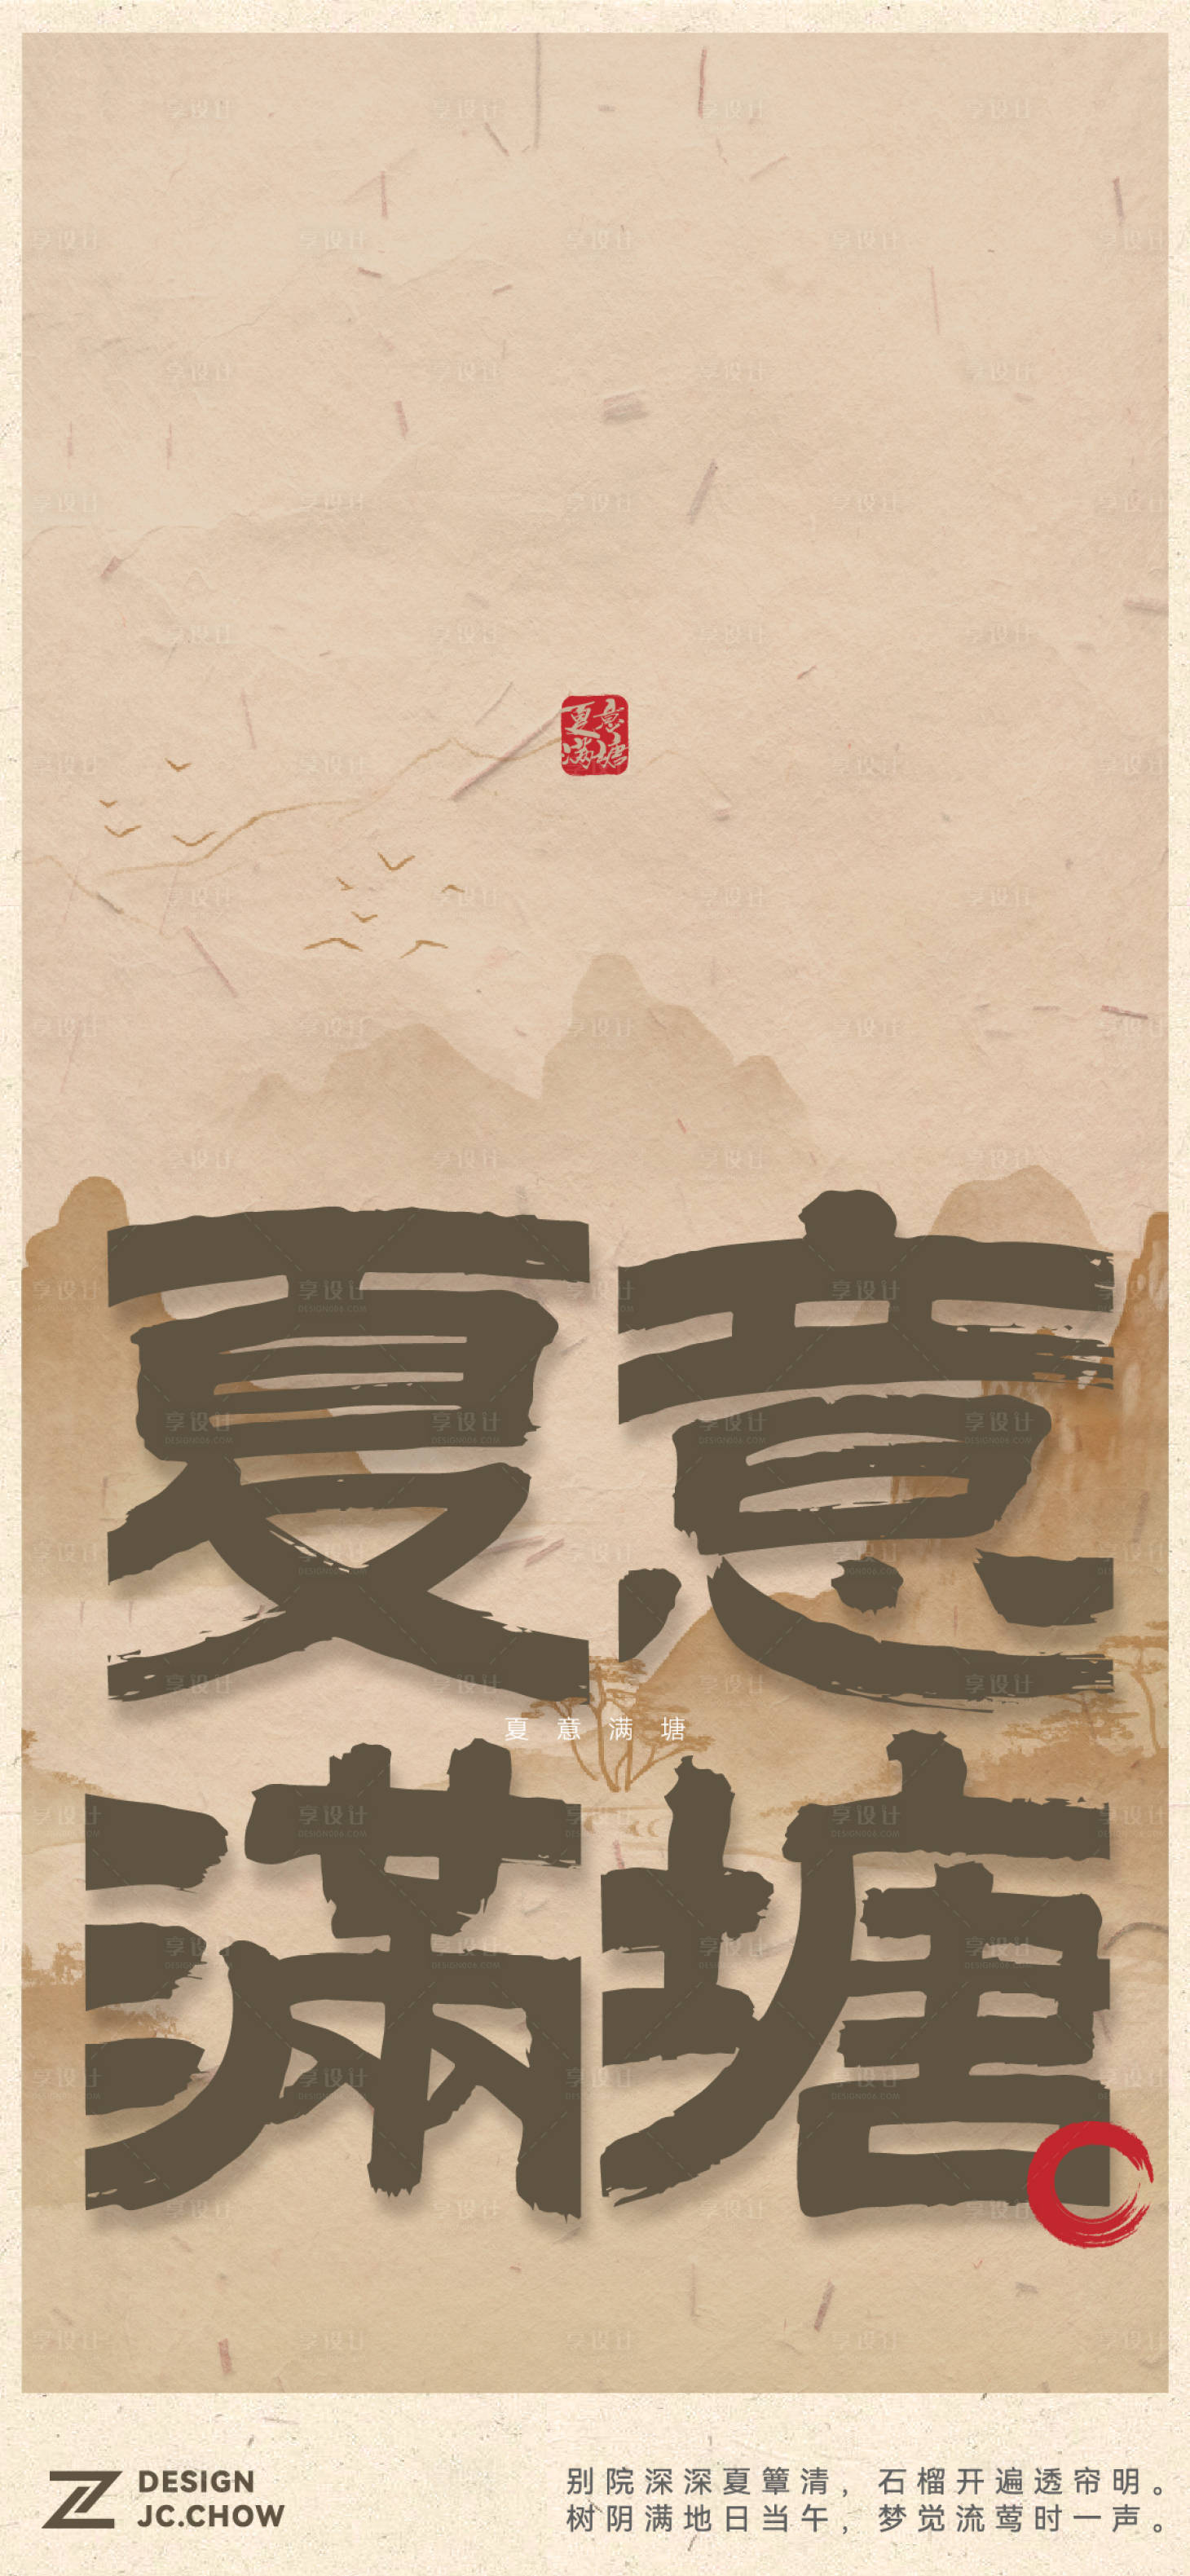 夏意
满塘
夏意满塘
夏意
满塘
DESIGN
JC.CHOW
别院深深夏簟清，石榴开遍透帘明。
树阴满地日当午，梦觉流莺时一声。
享设计
DESIGN006.COM